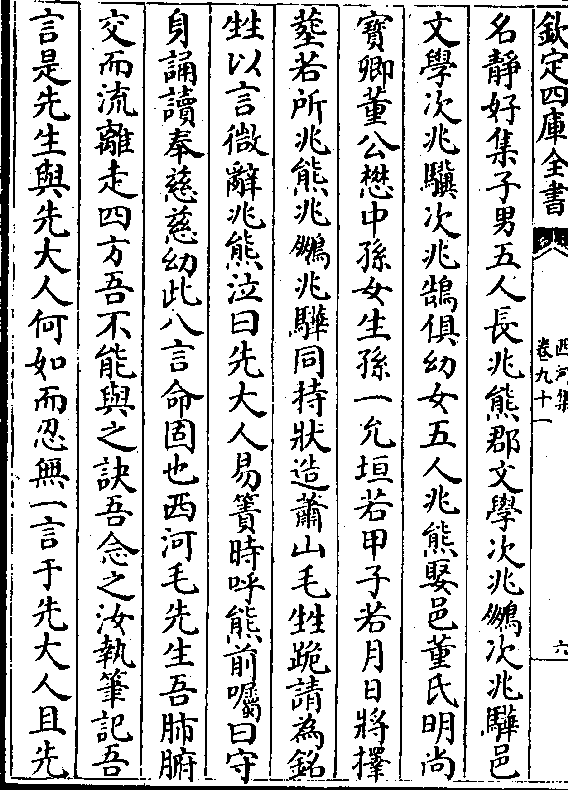 欽定四庫全書
西河集
卷九十一
六
名靜好集子男五人長兆熊郡文學次兆鵷次兆驊邑
文學次兆驥次兆鵠俱幼女五人兆熊娶邑董氏明尚
寳卿董公懋中孫女生孫一允垣若甲子若月日將擇
塟若所兆熊兆鵷兆驊同持狀造蕭山毛甡跪請為銘
甡以言微辭兆熊泣曰先大人易簀時呼熊前囑曰守
身誦讀奉慈慈幼此八言命固也西河毛先生吾肺腑
交而流離走四方吾不能與之訣吾念之汝執筆記吾
言是先生與先大人何如而忍無一言于先大人且先